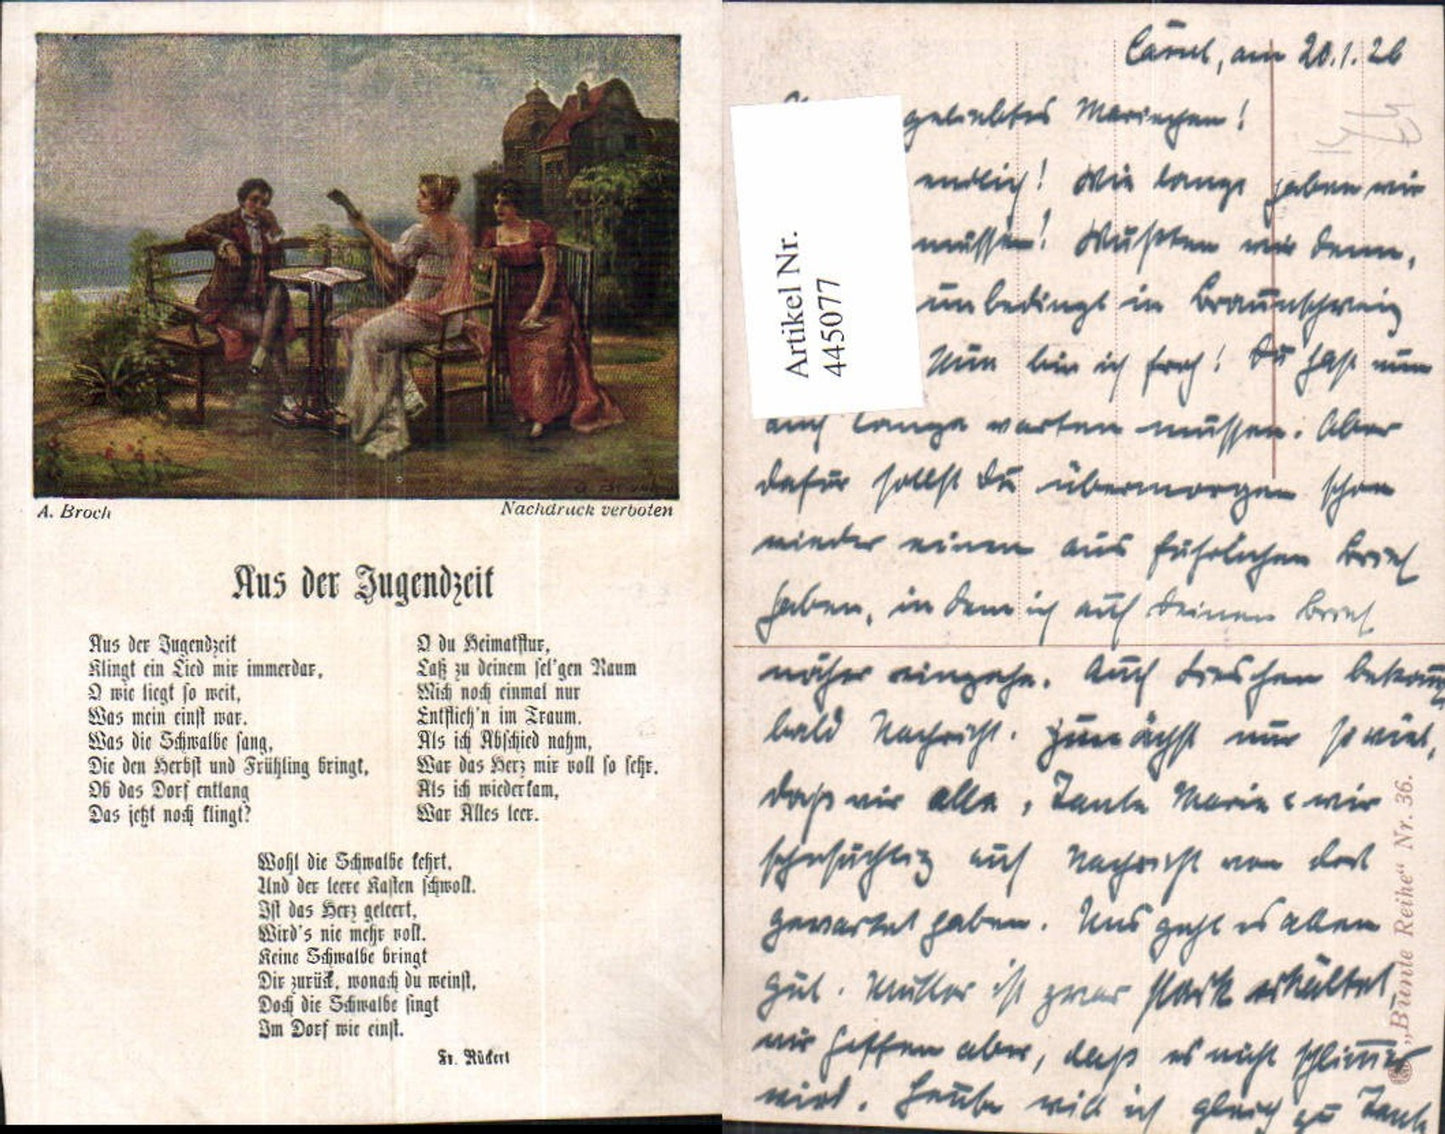 A. Broch
Nachdruck verboten
Aus der Jugendzeit
Aus der Jugendzeit
Klingt ein Lied mir immerdar,
O wie liegt so weit,
Was mein einst war.
Was die Schwalbe sang,
Die den Herbst und Frühling bringt,
Ob das Dorf entlang
Das jetzt noch klingt?
O du Heimatflur,
Laß zu deinem sel'gen Raum
Mich noch einmal nur
Entflieh'n im Traum.
Als ich Abschied nahm,
War das Herz mir voll so sehr.
Als ich wiederkam,
War Alles leer.
Wohl die Schwalbe kehrt,
Und der leere Kasten schwoll.
Ist das Herz geleert,
Wird's nie mehr voll.
Keine Schwalbe bringt
Dir zurück, wonach du weinst,
Doch die Schwalbe singt
Im Dorf wie einst.
Fr. Rückert
am 20.1.26
geliebtes Mariechen!
endlich! Wie lange haben wir
müssen! Wußten wir denn,
unbedingt in Braunschweig
Nun bin ich froh! Du hast nun
auch lange warten müssen. Aber
dafür sollst Du übermorgen schon
wieder einen ausführlichen Brief
haben, in dem ich auf Deinen Brief
näher eingehe. Auch Lieschen bekommt
bald Nachricht. Zunächst nur so viel,
daß wir alle, Tante Marie & wir
sehnsüchtig auf Nachricht von dort
gewartet haben. Uns geht es allen
gut. Mutter ist zwar stark erkältet
wir hoffen aber, daß es nicht schlimmer
wird. Heute will ich gleich zu Tante
Artikel Nr.
445077
„Bunte Reihe“ Nr. 36.